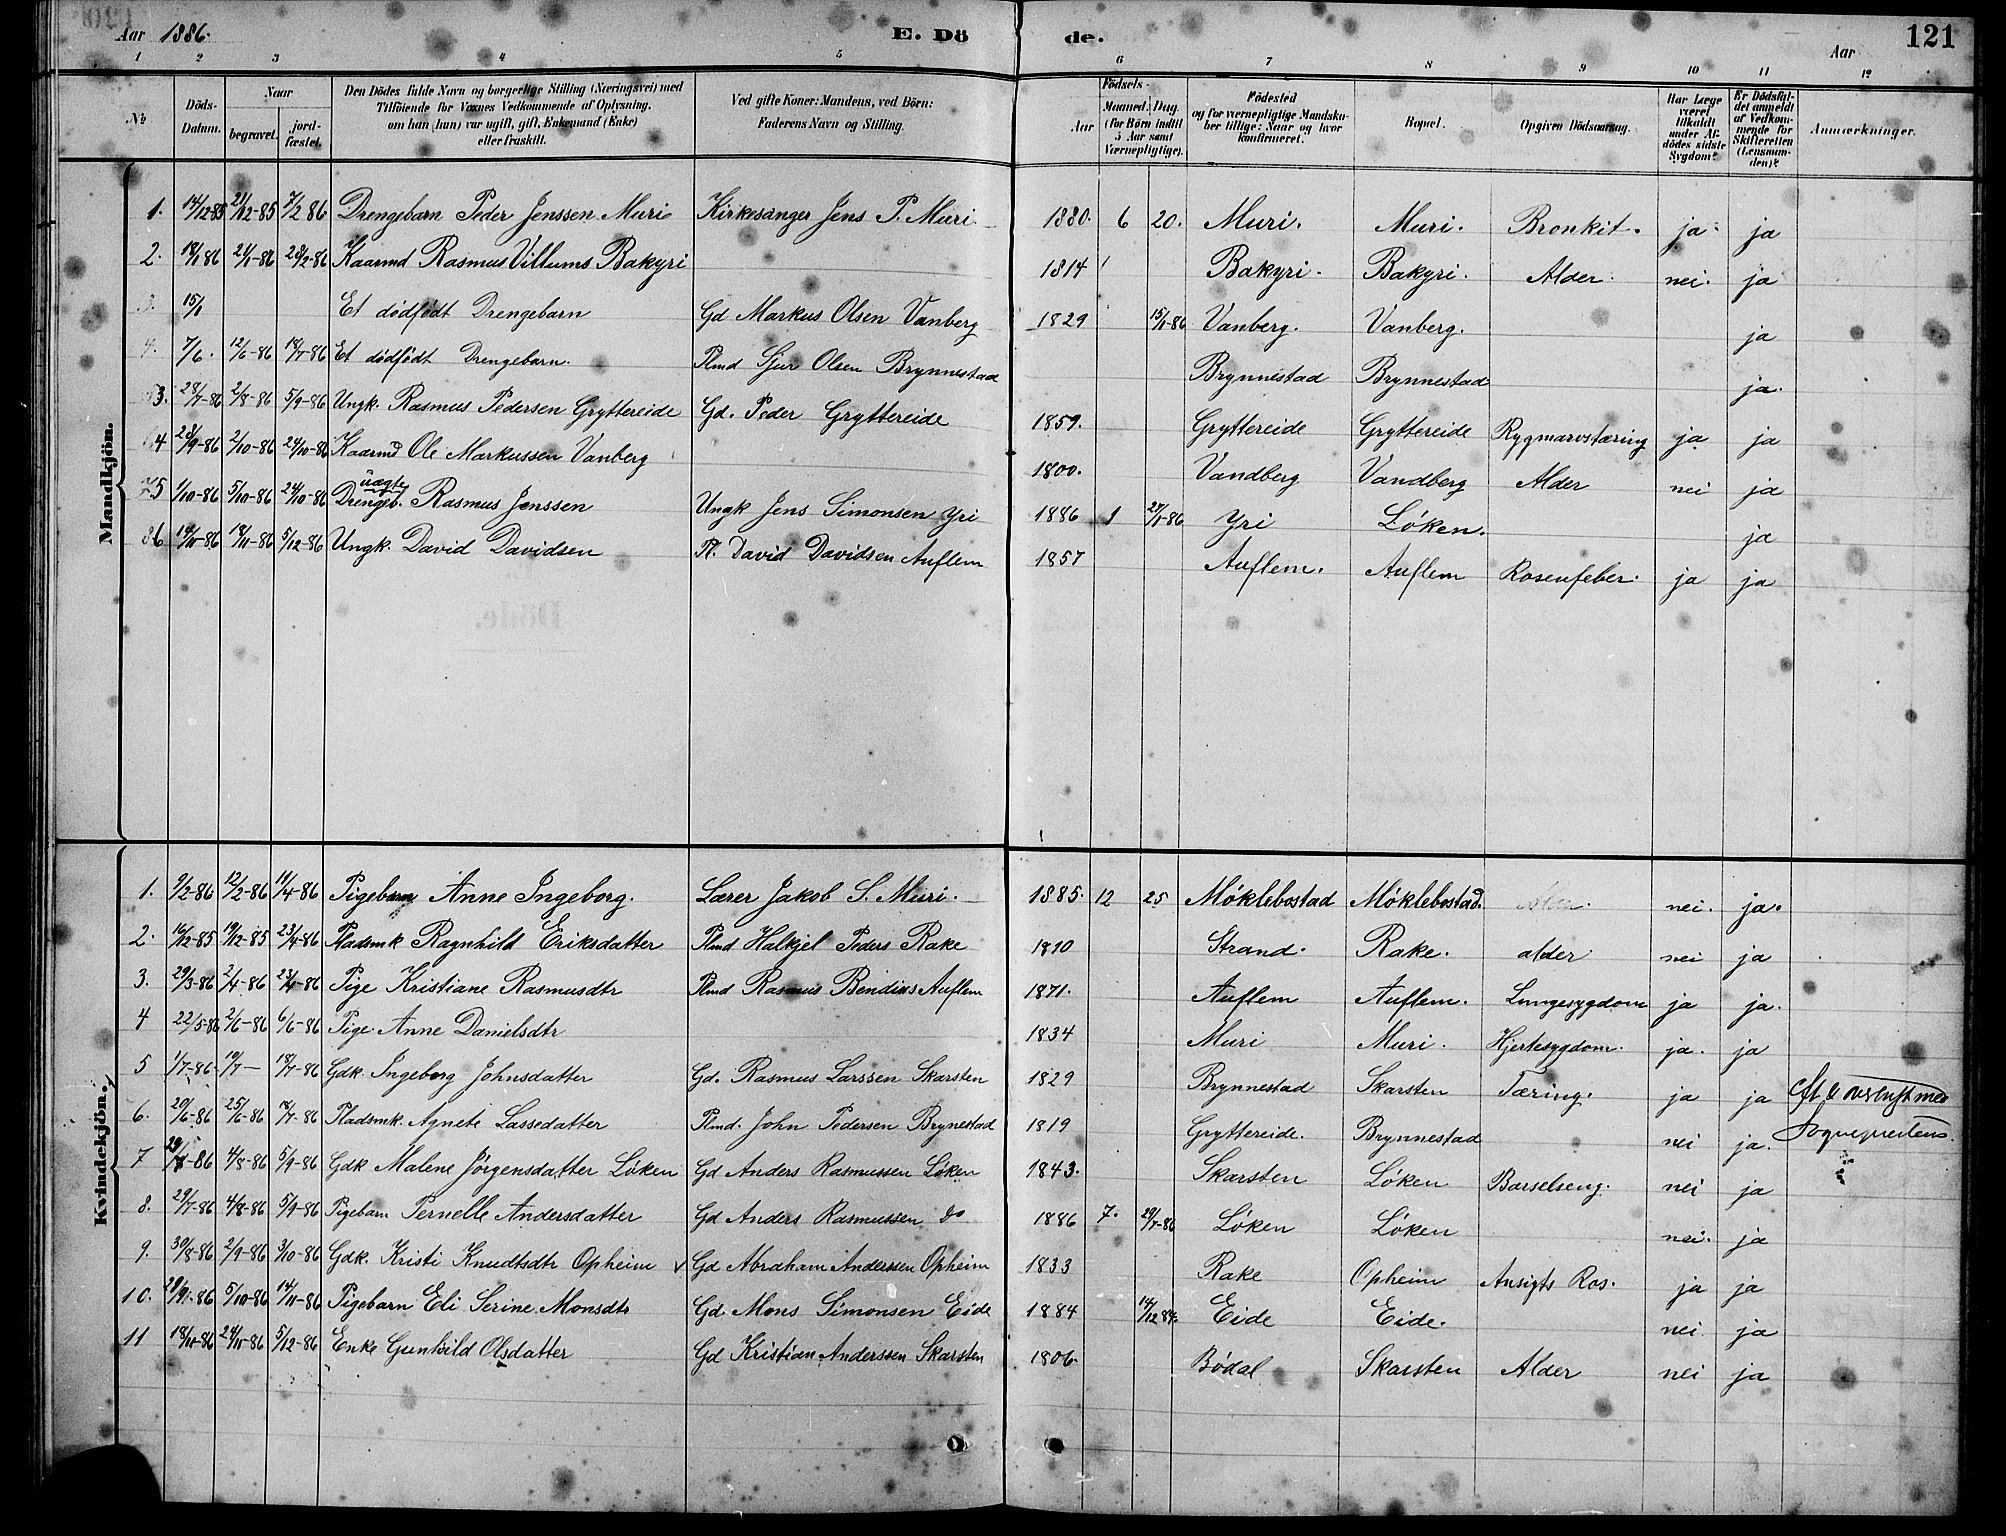 Aar 1886. E. Dö de. Aar 121
1 2 3 4 5 6 7 8 9 10 11 12
№ Döds-Datum. Naar begravet. jord-fæstet. Den Dödes fulde Navn og borgerlige Stilling (Næringsvei) med Tilföiende for Voxnes Vedkommende af Oplysning, om han (hun) var ugift, gift, Enkemand (Enke) eller fraskilt. Ved gifte Koner: Mandens, ved Börn: Faderens Navn og Stilling. Födsels- Aar Maaned. Dag. (for Börn indtil 5 Aar samt Værnepligtige). Födested og for værnepligtige Mandskaber tillige: Naar og hvor konfirmeret. Bopæl. Opgiven Dödsaarsag. Har Læge været tilkaldt under Afdödes sidste Sygdom? Er Dödsfaldet anmeldt af Vedkommende for Skifteretten (Lensmanden)? Anmærkninger.
Mandkjön.
1. 14/12-85 21/12-85 7/2 86 Drengebarn Peder Jenssen Muri Kirkesanger Jens P. Muri 1880. 6 20. Muri. Muri. Bronkit. ja ja
2. 18/1 86 21/1-86 28/2-86 Kaarmd Rasmus Villums Bakyri 1814 Bakyri. Bakyri. Alder. nei. ja
3. 15/1 Et dödfödt Drengebarn Gd Markus Olsen Vanberg 1829 15/1-86 Vanberg. Vanberg. ja
4. 7/6. 12/6-86 18/7-86 Et dödfödt Drengebarn. Plmd Sjur Olsen Brynnestad Brynnestad Brynnestad ja.
3. 28/7-86 2/8-86 5/9-86 Ungk. Rasmus Pedersen Gryttereide Gd. Peder Gryttereide 1859. Gryttereide Gryttereide Rygmarvstæring ja ja
4 28/9-86 2/10-86 24/10-86 Kaarmd Ole Markussen Vanberg 1800. Vandberg Vandberg Alder nei ja
5 1/10-86 5/10-86 24/10-86 uægte Drengeb. Rasmus Jenssen Ungk Jens Simonsen Yri 1886 1 27/1-86 Yri Löken. ja
6 14/11-86 18/11-86 5/12-86 Ungk. David Davidsen Pl. David Davidsen Auflem 1857 Auflem. Auflem Rosenfeber. ja ja
Kvindekjön.
1. 9/2-86 12/2-86 11/4-86 Pigebarn Anne Ingeborg. Lærer Jakob S. Muri. 1885. 12 25 Möklebostad Möklebostad. nei. ja.
2. 16/12-85 19/12-85 23/4-86 Pladsmk Ragnhild Eriksdatter Plmd Halkjel Peders Rake 1810 Strand. Rake. alder nei ja
3. 29/3-86 2/4-86 23/4-86 Pige Kristiane Rasmusdtr Plmd Rasmus Bendixs Auflem 1871. Auflem Auflem. Lungesygdom ja ja.
4 22/5-86 2/6-86 6/6-86 Pige Anne Danielsdtr 1834 Muri Muri. Hjertesygdom. ja. ja
5 1/7-86. 10/7 — 18/7-86 Gdk. Ingeborg Johnsdatter Gd. Rasmus Larssen Skarsten 1829 Brynnestad Skarsten Tæring. ja ja
6. 20/6-86 25/6-86 18/7-86 Pladsmk. Agnete Lassedatter Plmd. John Pedersen Brynestad 1819 Gryttereide. Brynnestad nei ja.
7 86 4/8-86 5/9-86 Gdk Malene Jörgensdatter Löken Gd Anders Rasmussen Löken 1843. Skarsten Löken Barselseng. nei ja
8. 29/7-86 4/8-86 5/9-86 Pigebarn Pernelle Andersdatter Gd Anders Rasmussen do 1886 7. 29/7-86 Löken Löken nei. ja
9. 30/8-86 2/9-86 3/10-86 Gdk. Kristi Knudtsdtr Opheim Gd Abraham Anderssen Opheim 1833 Rake Opheim Ansigts Ros. ja ja
10. 28/9-86 5/10-86 14/11-86 Pigebarn Eli Serine Monsdtr Gd. Mons Simonsen Eide 1884 14/12 84. Eide Eide. nei ja
11 18/11-86 24/11-86 5/12-86 Enke Gunhild Olsdatter Gd Kristian Anderssen Skarsten 1806. Bödal Skarsten Alder nei ja